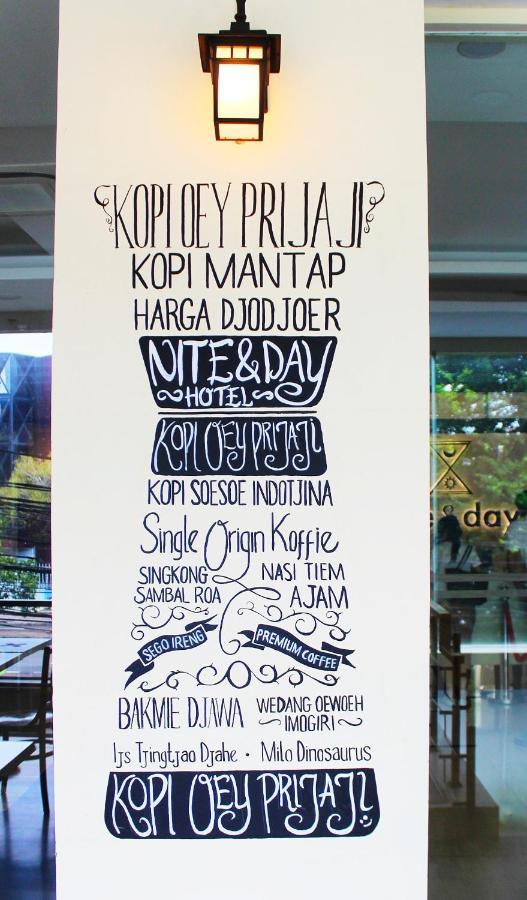 KOPI OEY PRIJAJI
KOPI MANTAP
HARGA DJODJOER
NITE & DAY
~ HOTEL ~
KOPI OEY PRIJAJI
KOPI SOESOE INDOTJINA
Single Origin Koffie
SINGKONG
SAMBAL ROA
NASI TIEM
AJAM
SEGO IRENG
PREMIUM COFFEE
BAKMIE DJAWA
WEDANG OEWOEH
~ IMOGIRI ~
Ijs Tjingtjao Djahe · Milo Dinosaurus
KOPI OEY PRIJAJI
& day